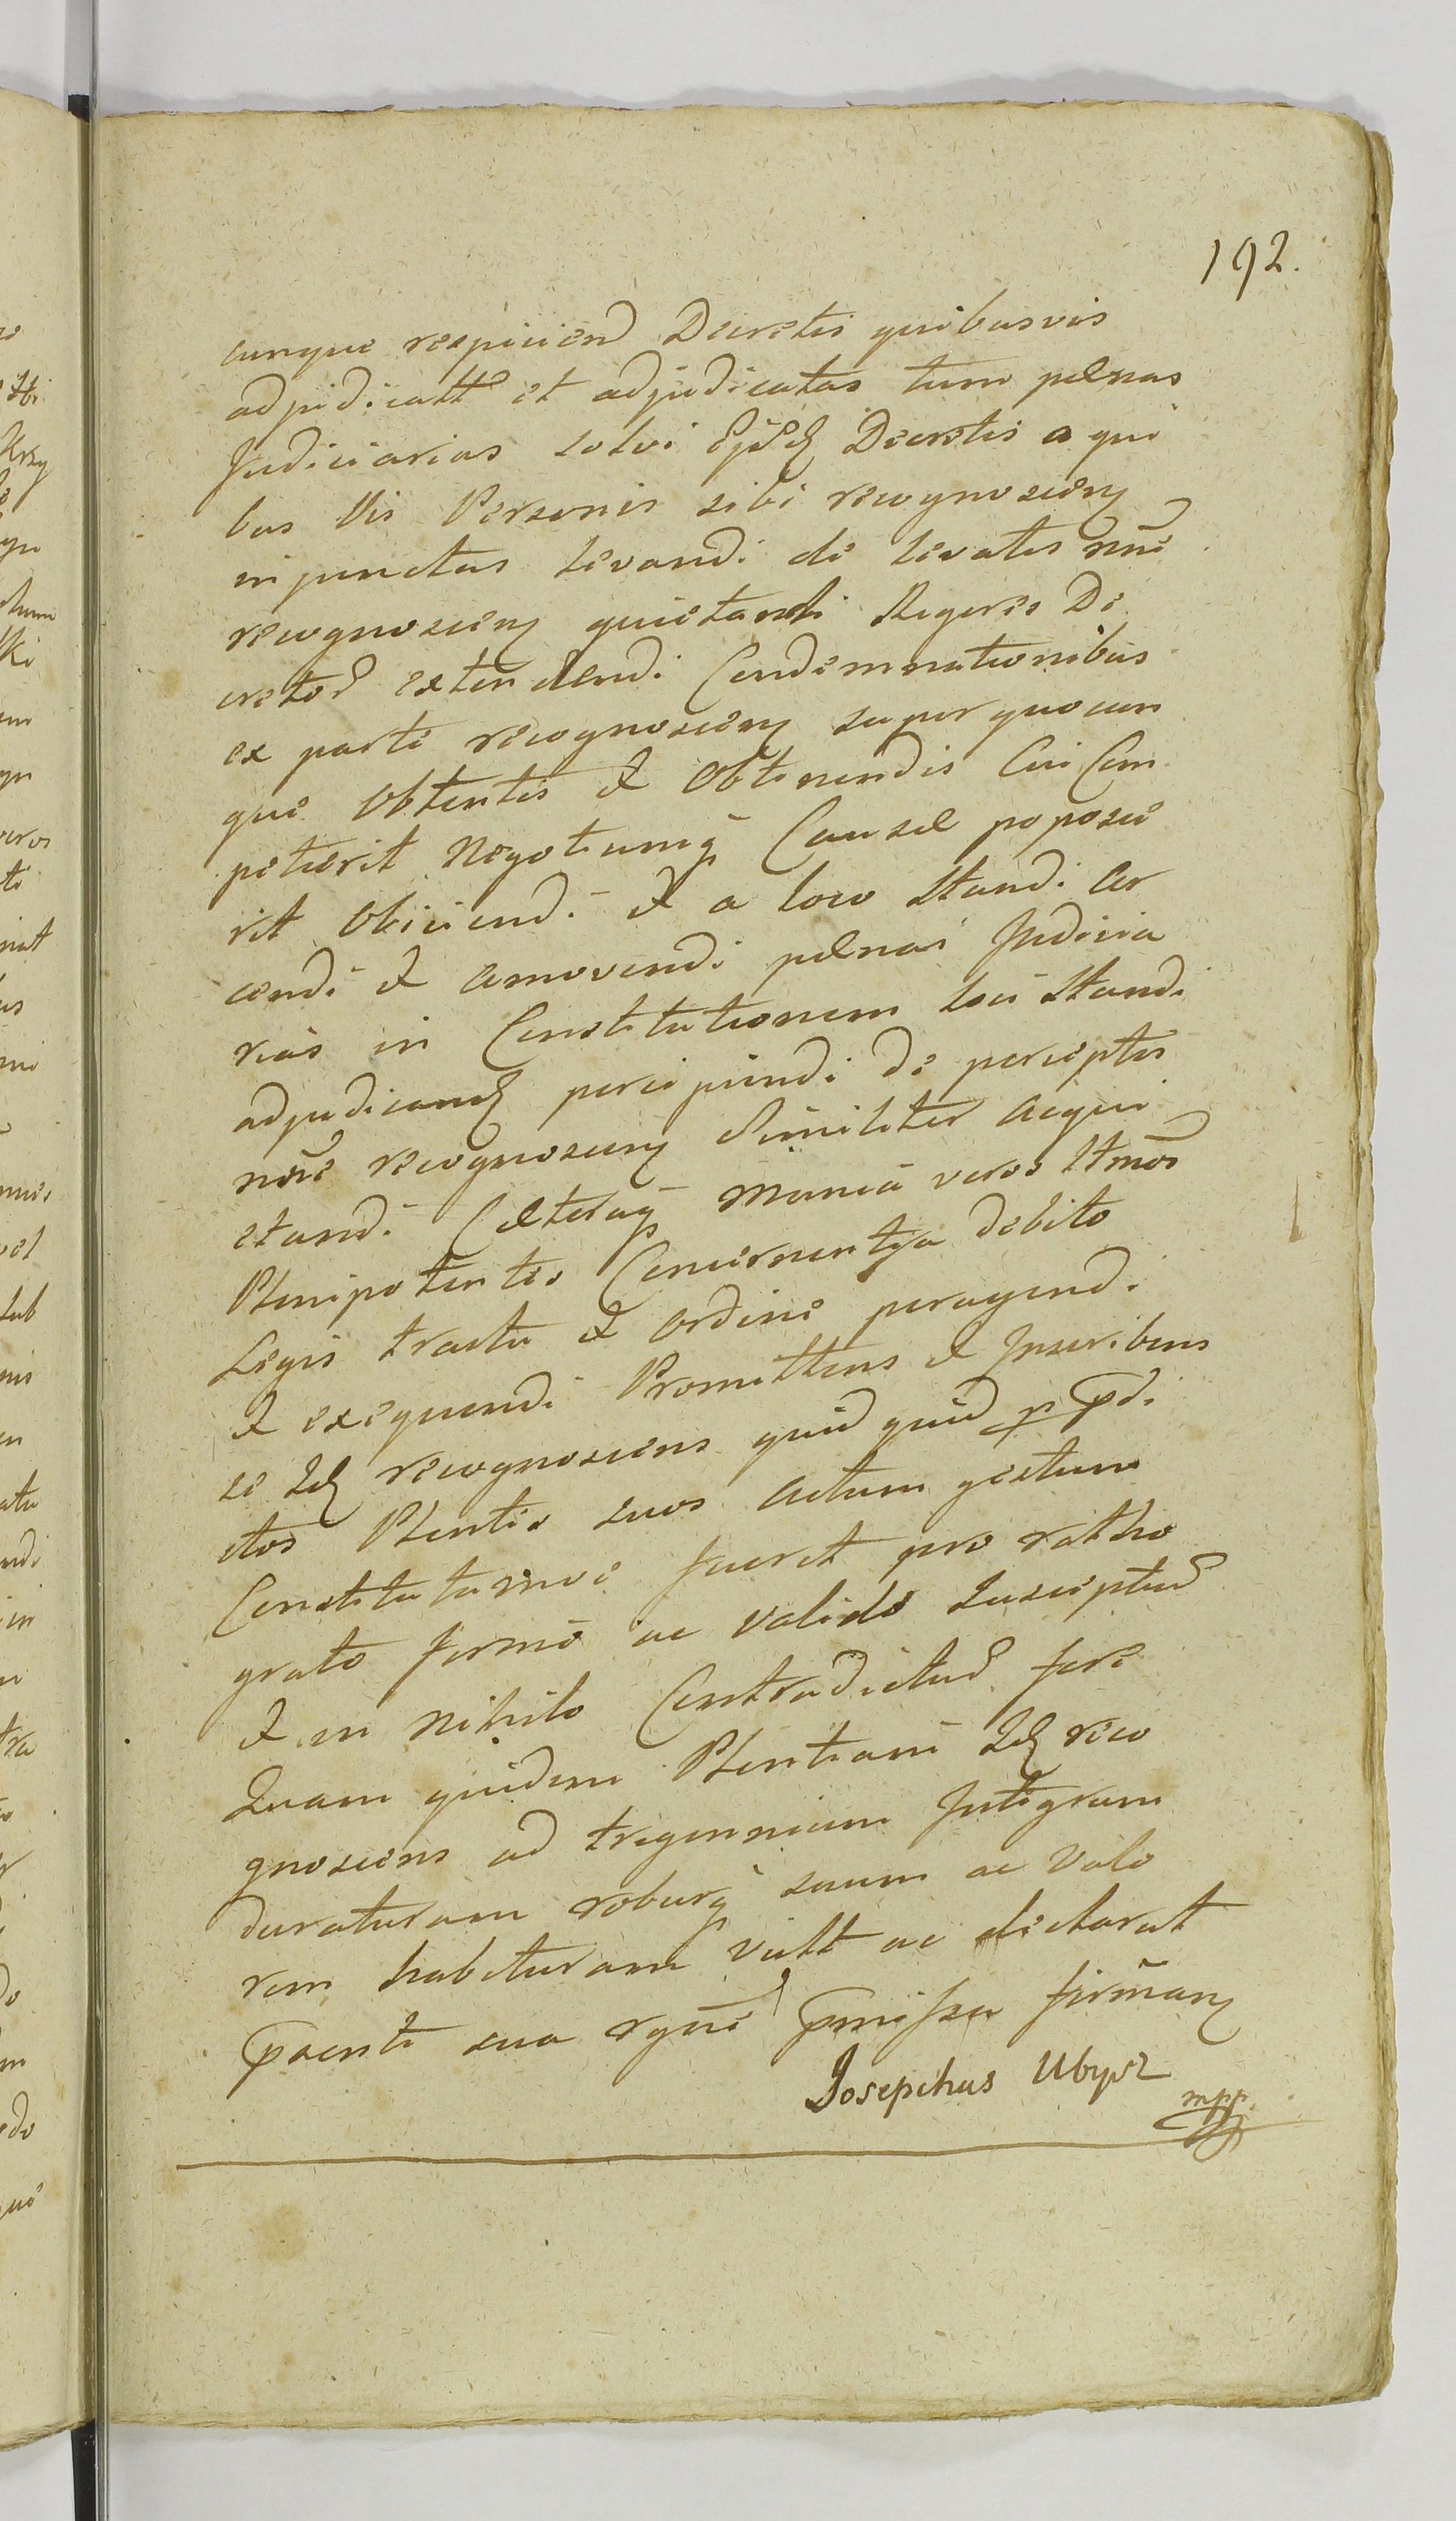 192.
cunque respiciend Decretis quibusvis
adjudicatt et adjudicatas tum pœnas
Judiciarias solvi Decretis a qui
bus Vis Personis sibi recognoscen
injunctas levandi de levatis nne
recognoscen quietandi Rigores De
cretor extendendi Condemnationibus
ex parte recognoscen super quocun
que Obtentis et Obtinendis Cui Com
petierit Negotiumq Causæ poposce
rit Obiiciendi et a loco Standi Ar
cendi et Amovendi pœnas Judicia
rias in Constitutionem loci Standi
adjudicand percipiendi de perceptis
nne recognoscen Similiter Acquie
tandi Cæteraq Munia veros Ltmos
Plenipotentes Concernentja debito
Legis tractu et Ordine peragendi
et exequendi Promittens et Inscribens
se Id recognoscens quid quid p
ctos Plentes suos Actum gestum
Constitutumve fuerit pro ratho
grato firmo ac valido Susciptur
et in Nihilo Contradictur fore
Quam quidem Plentiam Id reco
gnoscens ad tregennium Integrum
duraturam roburq suum ac Valo
rem habituram vult ac declarat
Psenti sua rgne Pmissa firman
Josepchus Ubysz
mpp.